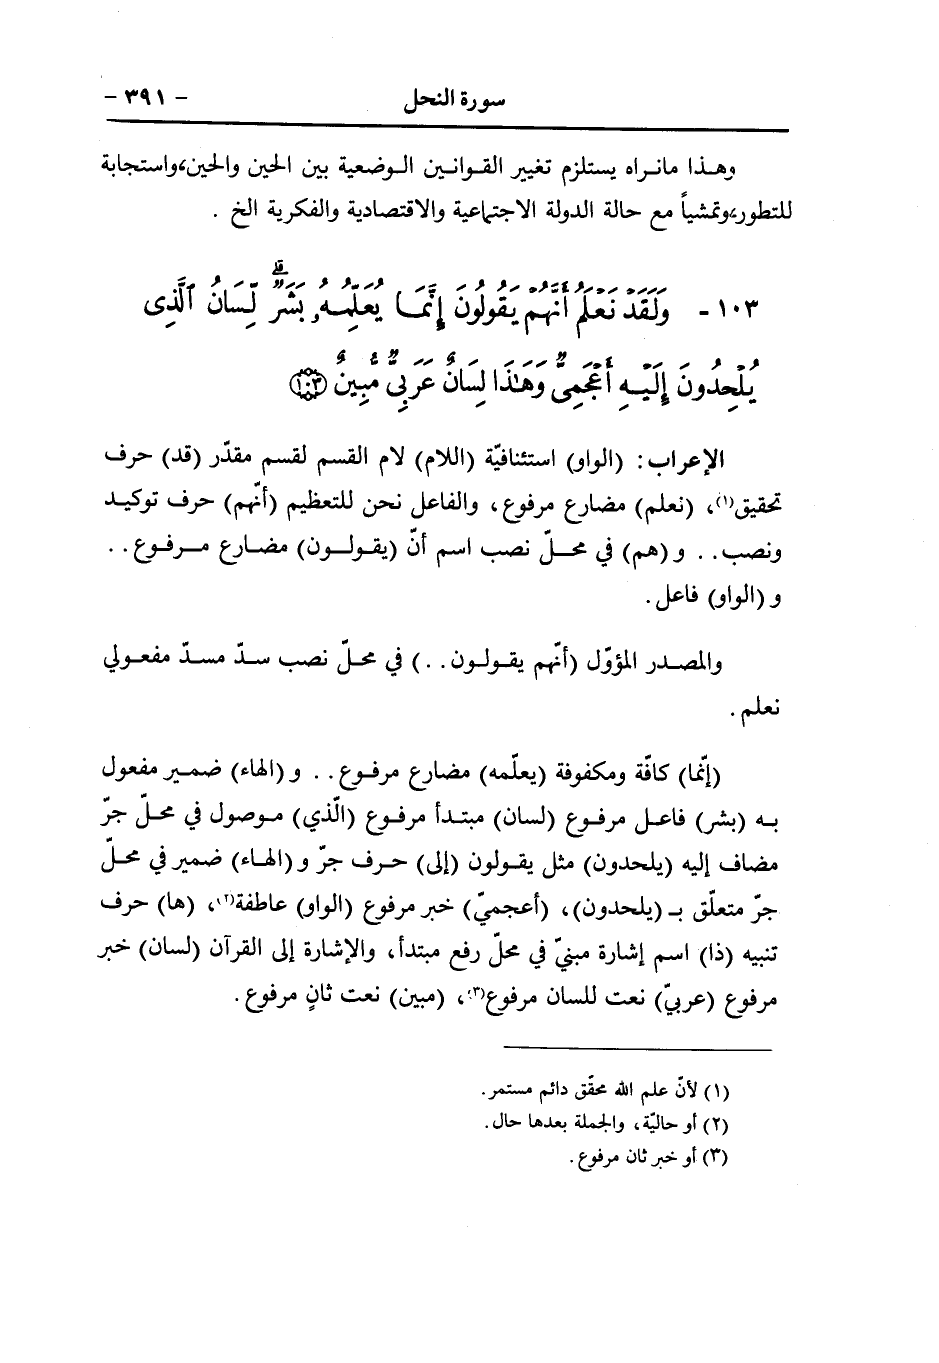 سورة النحل - ٣٩١ -
وهـذا مانـراه يستلزم تغيير القـوانـين الـوضعية بين الحين والحين،واستجابة
للتطور،وتمشياً مع حالة الدولة الاجتماعية والاقتصادية والفكرية الخ .
١٠٣ - وَلَقَدْ نَعْلَمُ أَنَّهُمْ يَقُولُونَ إِنَّمَا يُعَلِّمُهُۥ بَشَرٌ ۗ لِّسَانُ ٱلَّذِى
يُلْحِدُونَ إِلَيْهِ أَعْجَمِىٌّ وَهَـٰذَا لِسَانٌ عَرَبِىٌّ مُّبِينٌ ﴿١٠٣﴾
الإعراب : (الواو) استئنافيّة (اللام) لام القسم لقسم مقدّر (قد) حرف
تحقيق(١)، (نعلم) مضارع مرفوع، والفاعل نحن للتعظيم (أنّهم) حرف توكيـد
ونصب. . و (هم) في محـلّ نصب اسم أنّ (يقـولـون) مضـارع مـرفـوع . .
و (الواو) فاعل.
والمصـدر المؤوّل (أنّهم يقـولـون . .) في محـلّ نصب سدّ مسدّ مفعـولي
نعلم .
(إنّما) كافّة ومكفوفة (يعلّمه) مضارع مرفـوع . . و (الهاء) ضمـير مفعول
بـه (بشر) فاعـل مرفـوع (لسان) مبتـدأ مرفـوع (الّذي) مـوصول في محـلّ جرّ
مضاف إليه (يلحدون) مثل يقولون (إلى) حـرف جرّ و (الهـاء) ضمير في محـلّ
جرّ متعلّق بـ (يلحدون)، (أعجميّ) خبر مرفوع (الواو) عاطفة(٢)، (ها) حرف
تنبيه (ذا) اسم إشارة مبنيّ في محلّ رفع مبتدأ، والإشارة إلى القرآن (لسان) خبر
مرفوع (عربيّ) نعت للسان مرفوع(٣)، (مبين) نعت ثانٍ مرفوع .
(١) لأنّ علم الله محقّق دائم مستمر.
(٢) أو حاليّة، والجملة بعدها حال.
(٣) أو خبر ثان مرفوع .